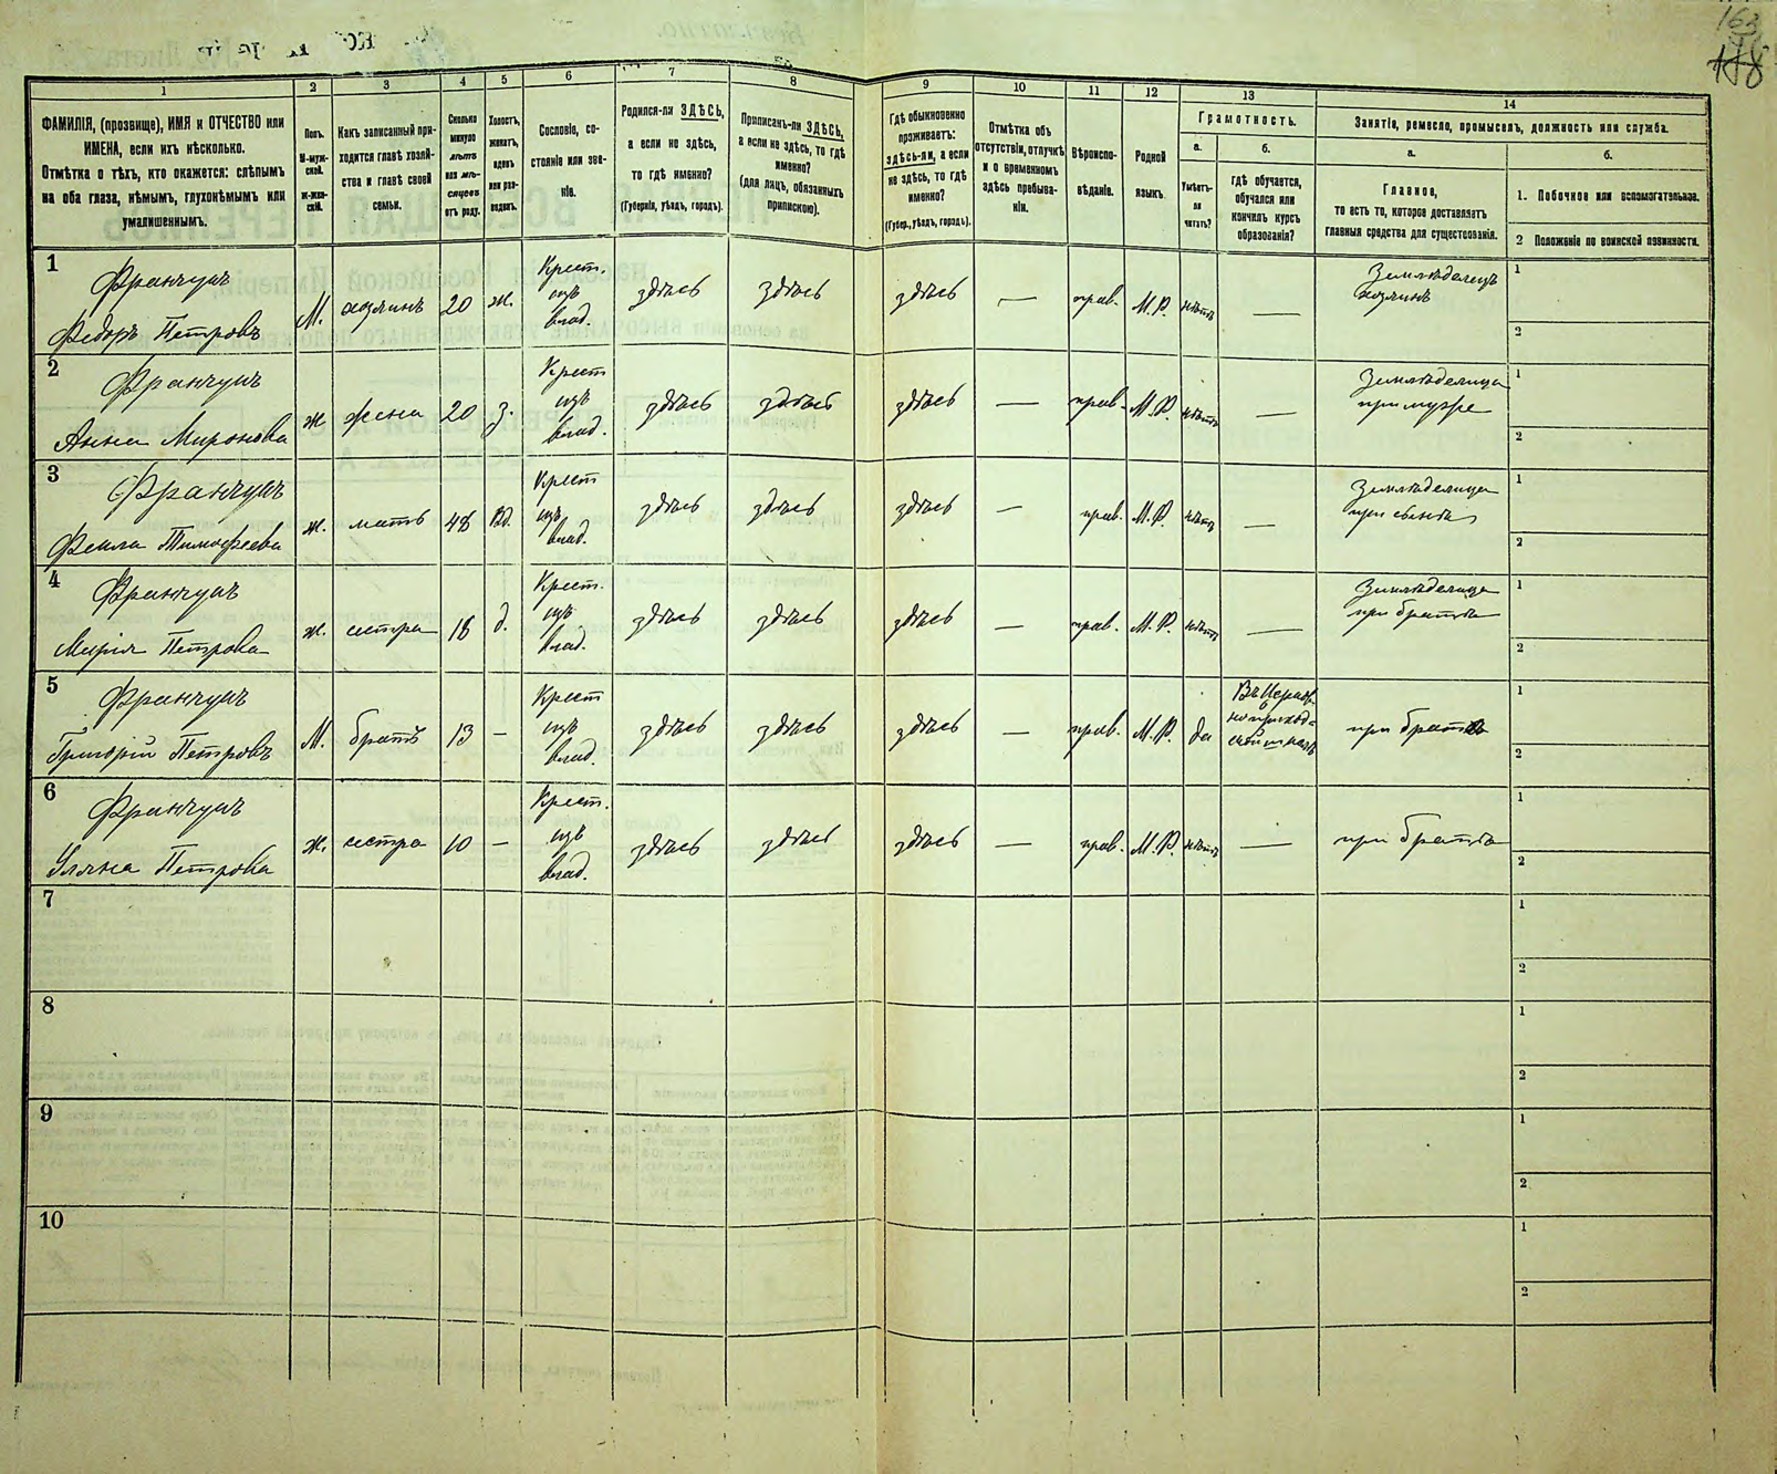 163
178
1
2
3
4
5
6
7
8
9
10
11
12
13
14
ФАМИЛІЯ, (прозвище), ИМЯ и ОТЧЕСТВО или
ИМЕНА, если ихъ нѣсколько.
Отмѣтка о тѣхъ, кто окажется: слѣпымъ
на оба глаза, нѣмымъ, глухонѣмымъ или
умалишеннымъ.
Полъ.
М-муж-
ской.
Ж-жен-
скій.
Какъ записанный при-
ходится главѣ хозяй-
ства и главѣ своей
семьи.
Сколько
минуло
лѣтъ
или мѣ-
сяцевъ
отъ роду.
Холостъ,
женатъ,
вдовъ
или раз-
веденъ.
Сословіе, со-
стояніе или зва-
ніе.
Родился-ли ЗДѢСЬ,
а если не здѣсь,
то гдѣ именно?
(Губернія, уѣздъ, городъ).
Приписанъ-ли ЗДѢСЬ,
а если не здѣсь, то гдѣ
именно?
(для лицъ, обязанныхъ
припискою).
Гдѣ обыкновенно
проживаетъ:
здѣсь-ли, а если
не здѣсь, то гдѣ
именно?
(Губер., уѣздъ, городъ).
Отмѣтка объ
отсутствіи, отлучкѣ
и о временномъ
здѣсь пребыва-
ніи.
Вѣроиспо-
вѣданіе.
Родной
языкъ.
Грамотность.
а.
Умѣетъ-
ли
читать?
б.
гдѣ обучается,
обучался или
кончилъ курсъ
образованія?
Занятіе, ремесло, промыселъ, должность или служба.
а.
Главное,
то есть то, которое доставляетъ
главныя средства для существованія.
б.
1. Побочное или вспомогательное.
2 Положеніе по воинской повинности.
1
Франчукъ
Федоръ Петровъ
М. хозяинъ 20 ж.
Крест.
изъ
влад.
здѣсь здѣсь здѣсь — прав. М.Р. нѣтъ —
Земледѣлецъ
хозяинъ
1
2
2
Франчукъ
Анна Миронова
Ж жена 20 з.
Крест
изъ
влад.
здѣсь здѣсь здѣсь — прав. М.Р. нѣтъ —
Земледѣлица
при мужѣ
1
2
3
Франчукъ
Фекла Тимофеева
ж. мать 48 вд.
Крест
изъ
влад.
здѣсь здѣсь здѣсь — прав. М.Р. нѣтъ —
Земледѣлица
при сынѣ
1
2
4
Франчукъ
Марія Петрова
ж. сестра 18 д.
Крест.
изъ
влад.
здѣсь здѣсь здѣсь — прав. М.Р. нѣтъ —
Земледѣлица
при братѣ
1
2
5
Франчукъ
Григорій Петровъ
М. братъ 13 —
Крест
изъ
влад.
здѣсь здѣсь здѣсь — прав. М.Р. да
Въ Церков-
но приход-
ской школѣ
при братѣ
1
2
6
Франчукъ
Уляна Петрова
ж. сестра 10 —
Крест.
изъ
влад.
здѣсь здѣсь здѣсь — прав. М.Р. нѣтъ —
при братѣ
1
2
7
1
2
8
1
2
9
1
2
10
1
2